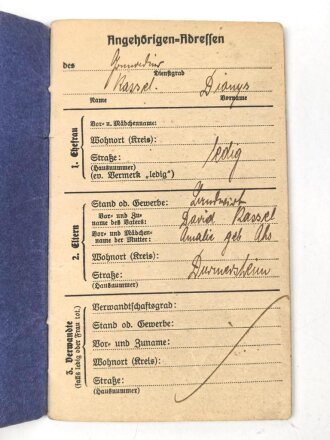 Angehörigen-Adressen
des Grenadier
Dienstgrad
Kassel. Dionys
Name Vorname
1. Ehefrau
Vor- u. Mädchenname:
Wohnort (Kreis):
Straße: ledig
(Hausnummer)
(ev. Vermerk „ledig")
2. Eltern
Stand od. Gewerbe: Landwirt
Vor- und Zuname des Vaters: David Kassel
Vor- und Mädchenname der Mutter: Amalie geb
Wohnort (Kreis):
Straße: Durmersheim
(Hausnummer)
3. Verwandte
(falls ledig oder Frau tot.)
Verwandtschaftsgrad:
Stand od. Gewerbe:
Vor- und Zuname:
Wohnort (Kreis):
Straße:
(Hausnummer)